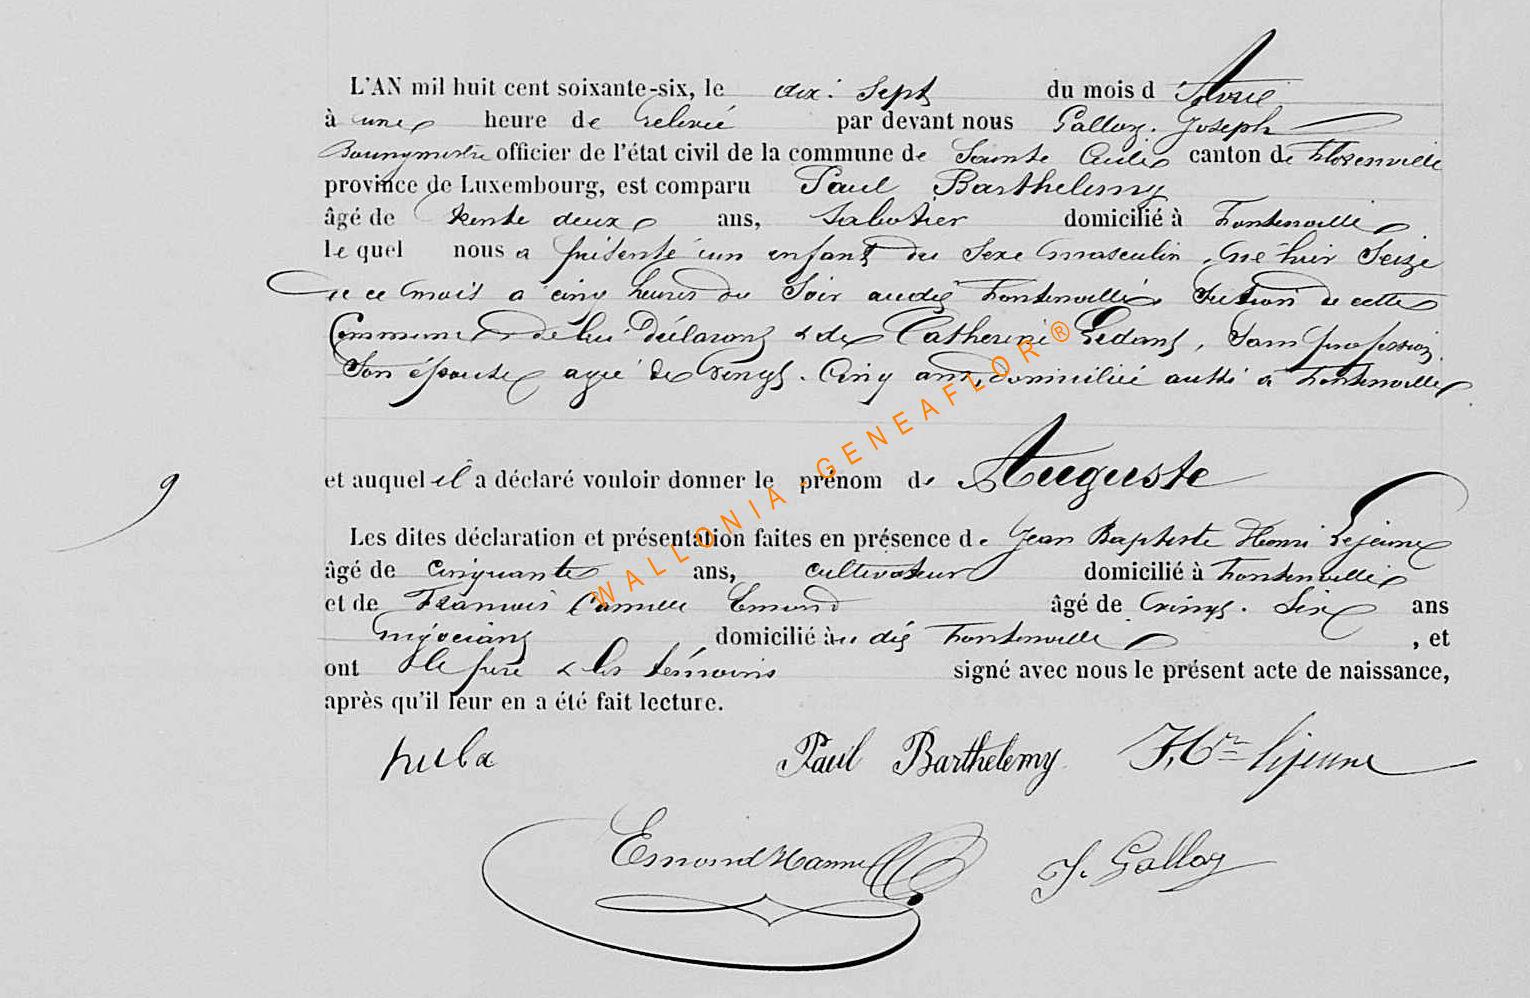 L'AN mil huit cent soixante-six, le dix-sept du mois d'Avril
à une heure de relevée par devant nous Galloy Joseph
Bourgmestre officier de l'état civil de la commune de Sainte Cécile canton de Florenville
province de Luxembourg, est comparu Paul Barthelemy
âgé de trente deux ans, sabotier domicilié à Fontenoille
lequel nous a présenté un enfant du sexe masculin, né hier seize
de ce mois à cinq heures du soir audit Fontenoille section de cette
Commune de lui déclarant & de Catherine, sans profession
son épouse agée de vingt-cinq ans, domiciliée aussi à Fontenoille
et auquel il a déclaré vouloir donner le prénom de Auguste
9
Les dites déclaration et présentation faites en présence de Jean Baptiste Henri Lejeune
âgé de cinquante ans, cultivateur domicilié à Fontenoille
et de François Camille Emond âgé de vingt-six ans
négociant domicilié audit Fontenoille, et
ont le père & les témoins signé avec nous le présent acte de naissance,
après qu'il leur en a été fait lecture.
Paul Barthelemy Lejeune
Emond J. Galloy
WALLONIA-GENEAFLOR®